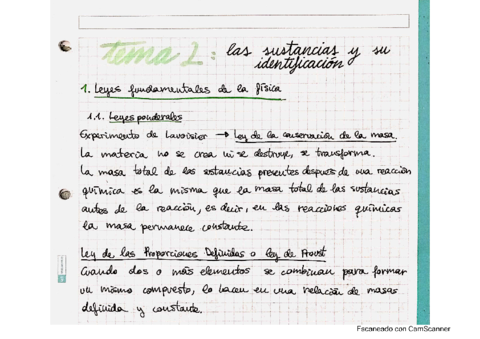 tema 1: las sustancias y su
identificación
1. Leyes fundamentales de la física
1.1. Leyes ponderales
Experimento de Lavoisier → Ley de la conservación de la masa.
La materia no se crea ni se destruye, se transforma.
La masa total de las sustancias presentes después de una reacción
química es la misma que la masa total de las sustancias
antes de la reacción, es decir, en las reacciones químicas
la masa permanece constante.
Ley de las Proporciones Definidas o ley de Proust
Cuando dos o más elementos se combinan para formar
un mismo compuesto, lo hacen en una relación de masas
definida y constante.
Escaneado con CamScanner